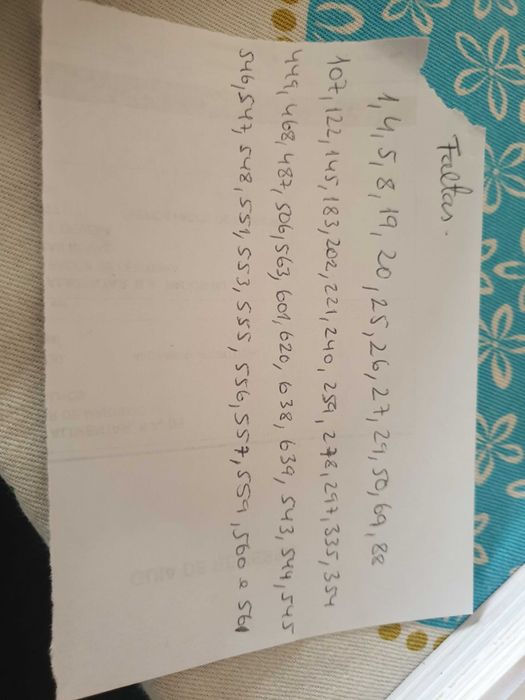 Faltas.
1, 4, 5, 8, 19, 20, 25, 26, 27, 29, 50, 69, 88
107, 122, 145, 183, 202, 221, 240, 259, 278, 297, 335, 354
449, 468, 487, 506, 563, 601, 620, 638, 639, 543, 544, 545
546, 547, 548, 551, 553, 555, 556, 557, 559, 560 e 561